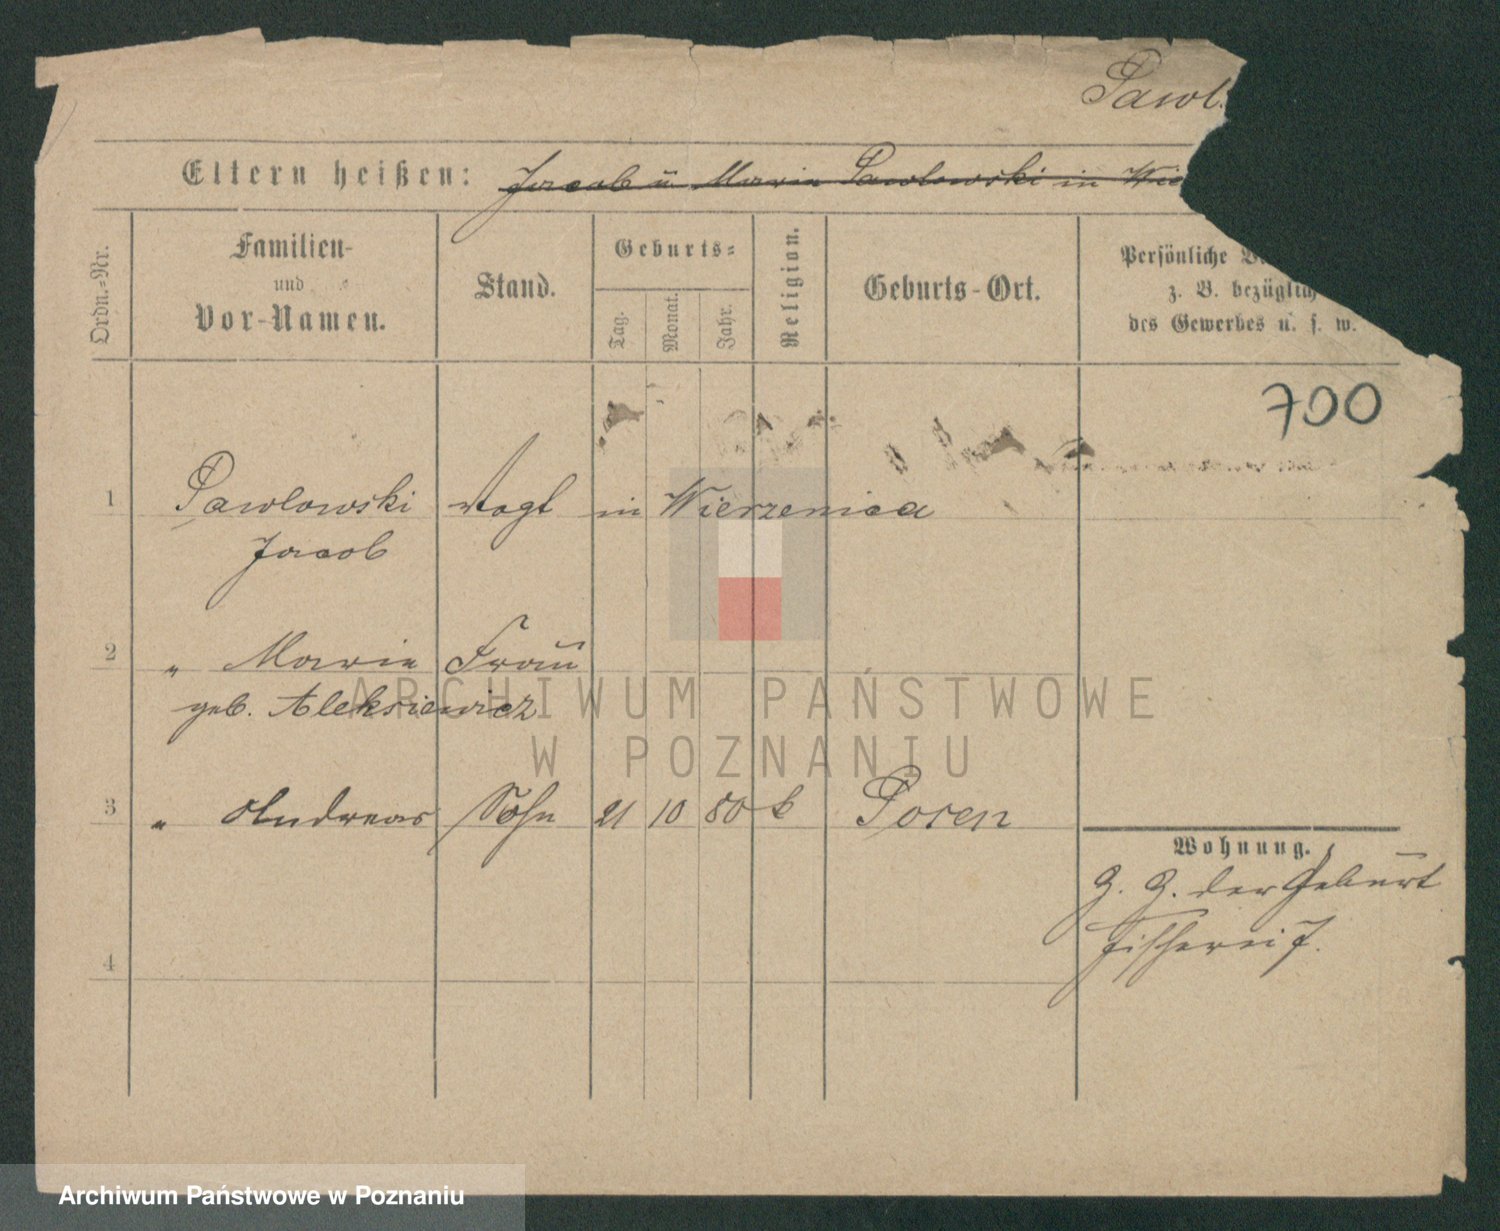 Pawl
Eltern heißen: Jacob u Marie Pawlowski in Wie
Ordn.-Nr.
Familien-
und
Vor-Namen.
Stand.
Geburts-
Tag.
Monat.
Jahr.
Religion.
Geburts-Ort.
Persönliche
z. B. bezüglich
des Gewerbes u. s. w.
700
1 Pawlowski Vogt in Wierzenica
Jacob
2 " Marie Frau
geb. Aleksiewicz
3 " Andreas Sohn 21 10 80 k Posen
Wohnung.
z. Z. der Geburt
Fischerei 7.
4
ARCHIWUM PAŃSTWOWE
W POZNANIU
Archiwum Państwowe w Poznaniu